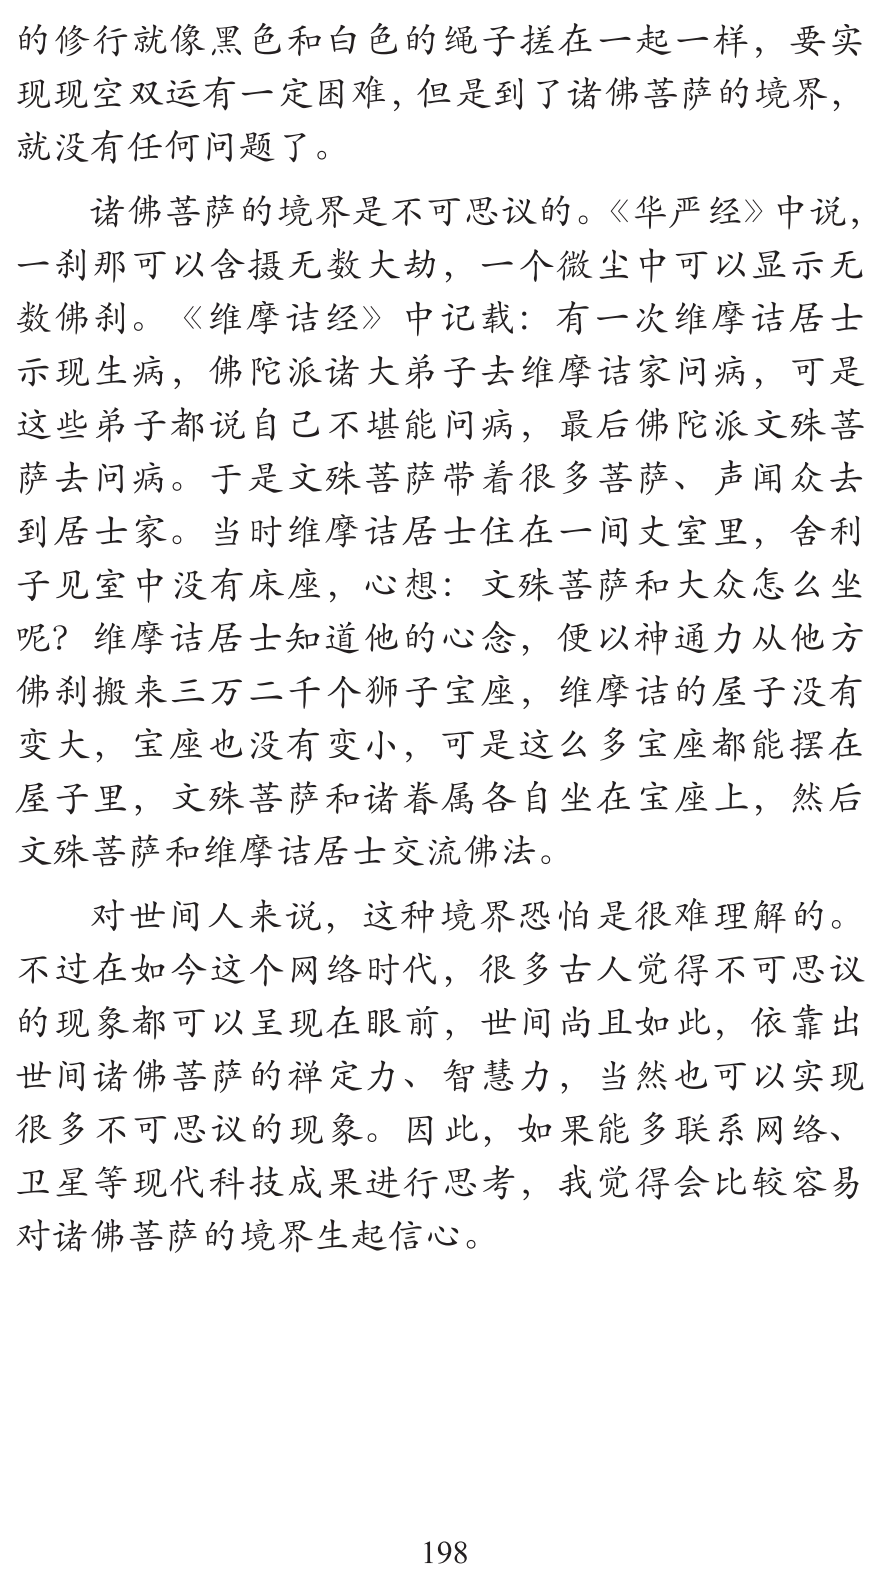 的修行就像黑色和白色的绳子搓在一起一样，要实
现现空双运有一定困难，但是到了诸佛菩萨的境界，
就没有任何问题了。
诸佛菩萨的境界是不可思议的。《华严经》中说，
一刹那可以含摄无数大劫，一个微尘中可以显示无
数佛刹。《维摩诘经》中记载：有一次维摩诘居士
示现生病，佛陀派诸大弟子去维摩诘家问病，可是
这些弟子都说自己不堪能问病，最后佛陀派文殊菩
萨去问病。于是文殊菩萨带着很多菩萨、声闻众去
到居士家。当时维摩诘居士住在一间丈室里，舍利
子见室中没有床座，心想：文殊菩萨和大众怎么坐
呢？维摩诘居士知道他的心念，便以神通力从他方
佛刹搬来三万二千个狮子宝座，维摩诘的屋子没有
变大，宝座也没有变小，可是这么多宝座都能摆在
屋子里，文殊菩萨和诸眷属各自坐在宝座上，然后
文殊菩萨和维摩诘居士交流佛法。
对世间人来说，这种境界恐怕是很难理解的。
不过在如今这个网络时代，很多古人觉得不可思议
的现象都可以呈现在眼前，世间尚且如此，依靠出
世间诸佛菩萨的禅定力、智慧力，当然也可以实现
很多不可思议的现象。因此，如果能多联系网络、
卫星等现代科技成果进行思考，我觉得会比较容易
对诸佛菩萨的境界生起信心。
198